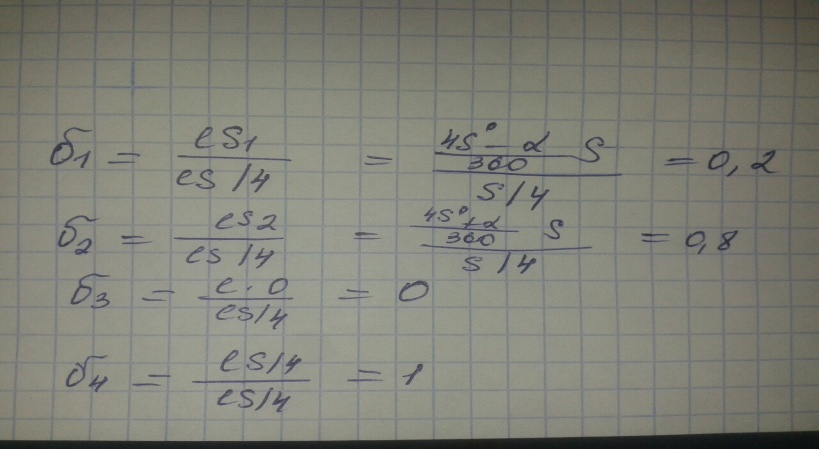 б1 = es1 / es/4 = (45° - α / 360) S / S/4 = 0,2
б2 = es2 / es/4 = (45° + α / 360) S / S/4 = 0,8
б3 = e·0 / es/4 = 0
б4 = es/4 / es/4 = 1